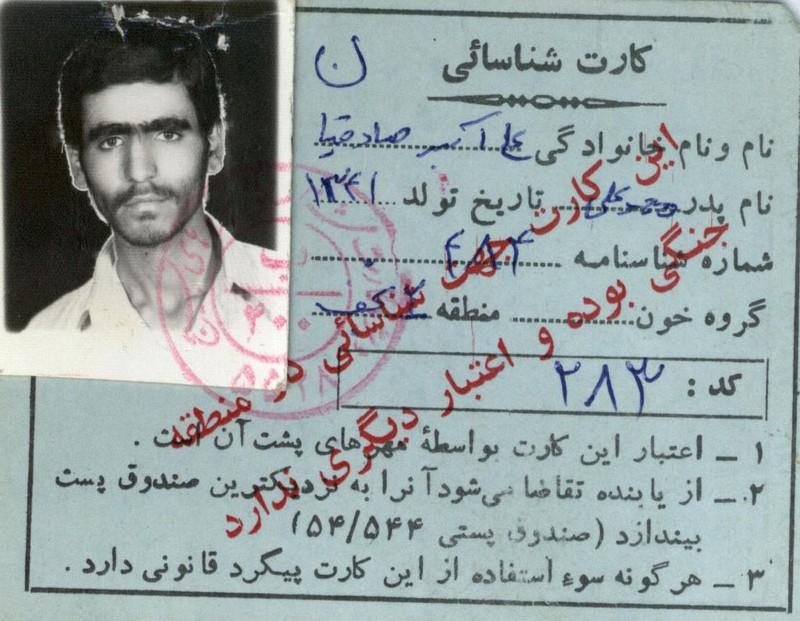 کارت شناسائی
ن
نام و نام خانوادگی علی اکبر صادقیا
نام پدر محمد علی تاریخ تولد ۱۳۴۱
شماره شناسنامه ۴۸۴
گروه خون منطقه
کد : ۲۸۳
۱ – اعتبار این کارت بواسطهٔ مهرهای پشت آن است .
۲ – از یابنده تقاضا می‌شود آنرا به نزدیکترین صندوق پست
بیندازد (صندوق پستی ۵۴/۵۴۴)
۳ – هرگونه سوء استفاده از این کارت پیگرد قانونی دارد .
این کارت جهت شناسائی در منطقه
جنگی بوده و اعتبار دیگری ندارد